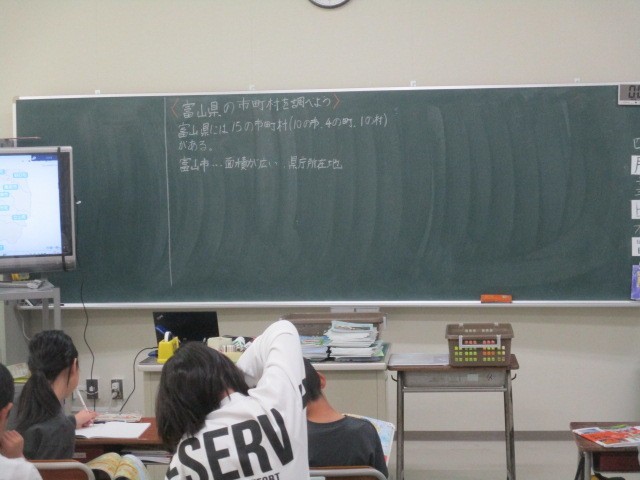 〈富山県の市町村を調べよう〉
富山県には15の市町村(10の市、4の町、1の村)
がある。
富山市…面積が広い 県庁所在地
ESERV